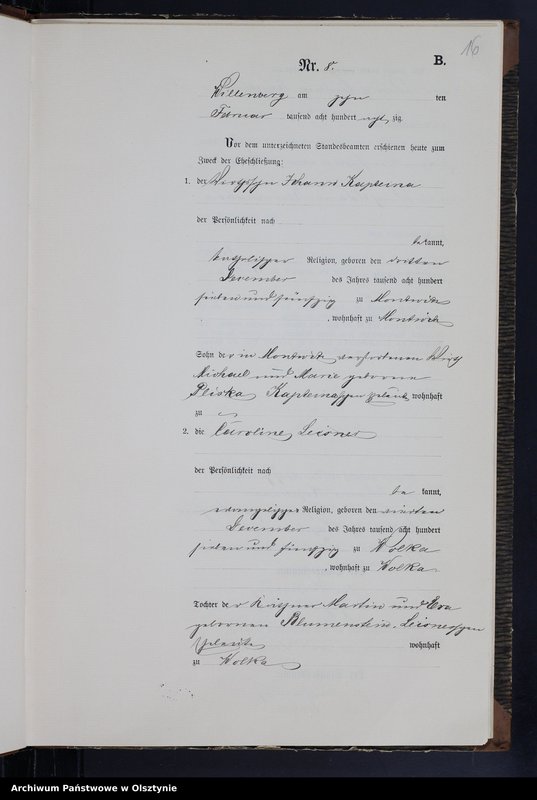 16
Nr. 8. B.
Willenberg am zehn ten
Februar tausend acht hundert achtzig.
Vor dem unterzeichneten Standesbeamten erschienen heute zum
Zweck der Eheschließung:
1. der Wirthssohn Johann Kapteina
der Persönlichkeit nach
bekannt,
katholischer Religion, geboren den dritten
Dezember des Jahres tausend acht hundert
sieben und fünfzig zu Montwitz
, wohnhaft zu Montwitz
Sohn der in Montwitz verstorbenen Wirth
Michael und Marie geborene
Pliska, Kapteinaschen Eheleute wohnhaft
zu
2. die Caroline Leisner
der Persönlichkeit nach
bekannt,
evangelischer Religion, geboren den vierten
Dezember des Jahres tausend acht hundert
sieben und fünfzig zu Wolka
, wohnhaft zu Wolka
Tochter der Martin und Eva
geborenen Blumenstein, Leisnerschen
Eheleute wohnhaft
zu Wolka
Archiwum Państwowe w Olsztynie